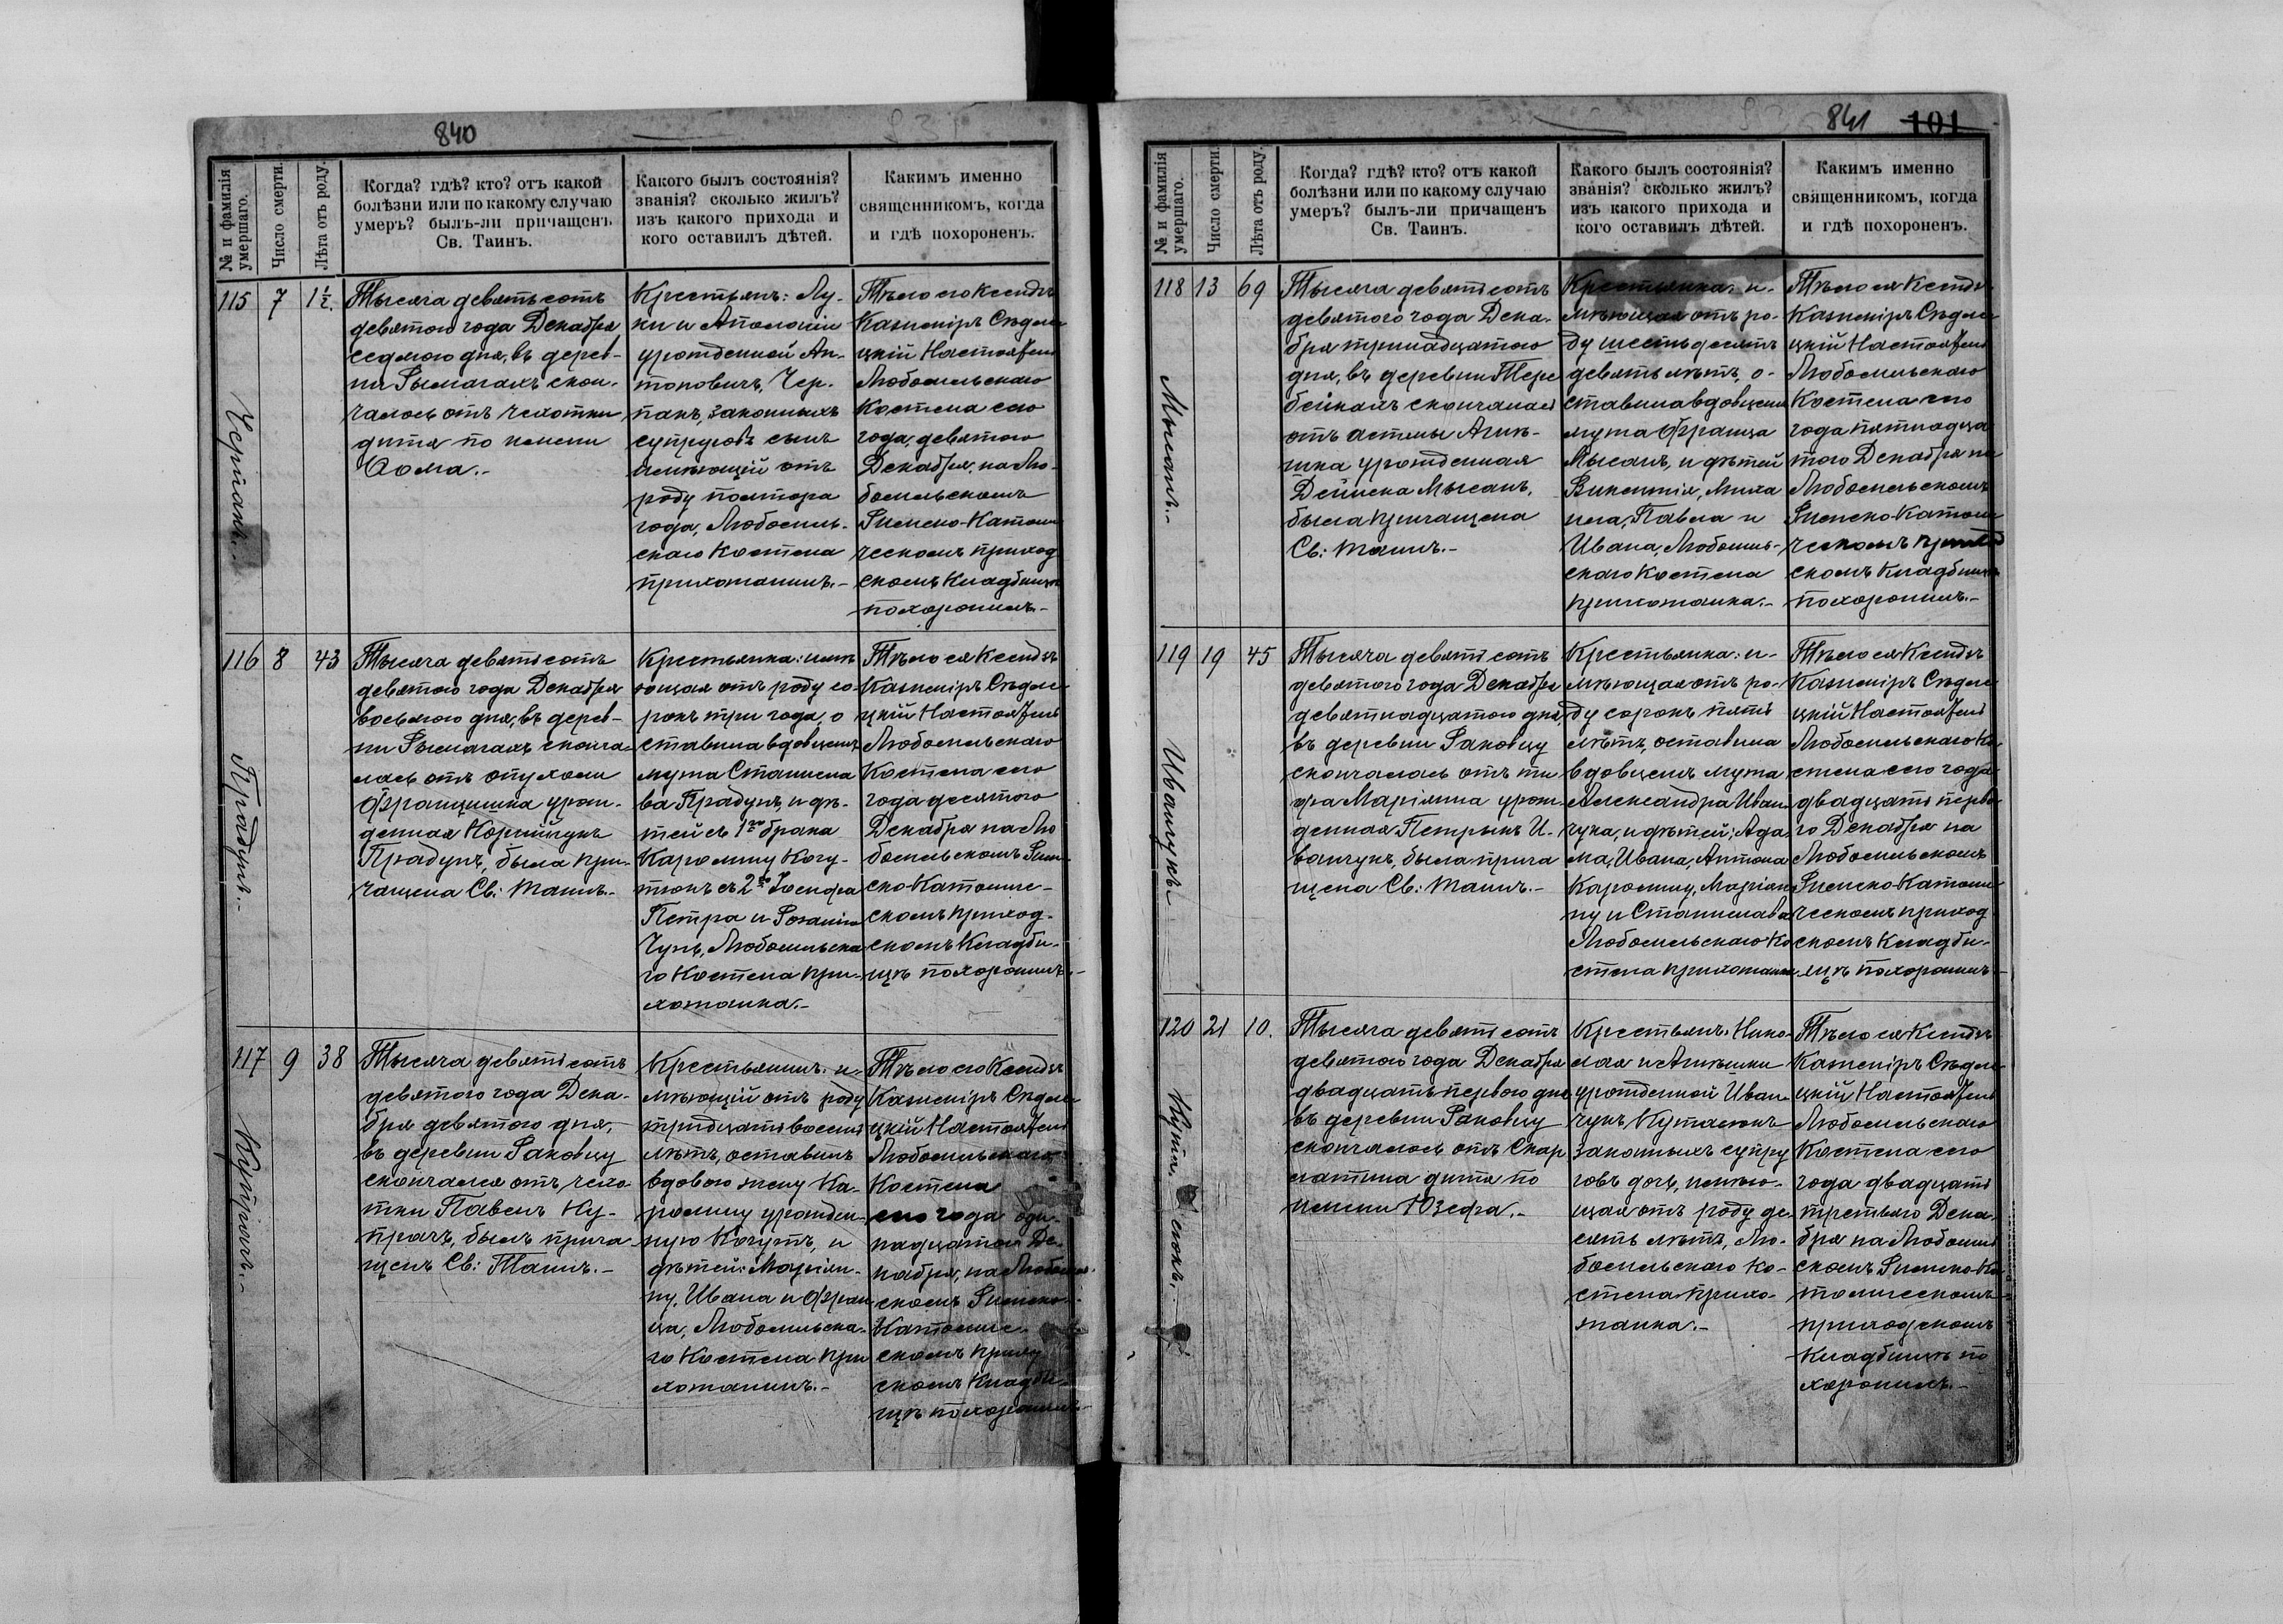 840
№ и фамилія умершаго.
Число смерти.
Лѣта отъ роду.
Когда? гдѣ? кто? отъ какой
болѣзни или по какому случаю
умеръ? былъ-ли причащенъ
Св. Таинъ.
Какого былъ состоянія?
званія? сколько жилъ?
изъ какого прихода и
кого оставилъ дѣтей.
Каким именно
священникомъ, когда
и гдѣ похороненъ.
115
7
1 1/2.
Черпакъ.-
Тысяча девятьсотъ
девятого года Декабря
седмого дня, въ дерев-
ни Рымачахъ скон-
чалось отъ чехотки
дитя по имени
Ѳома.-
Крестьянъ: Лу-
ки и Аполоніи
урожденной Ан-
тоновичъ, Чер-
пакъ, законныхъ
супруговъ сынъ
имѣющій отъ
роду полтора
года, Любомль-
скаго Костела
прихожанинъ.-
Тѣло его Ксендзъ
Казиміръ Сѣдле-
цкій Настоятель
Любомльскаго
Костела сего
года, девятого
Декабря, на Лю-
бомльскомъ
Римско-Католи
ческомъ приход
скомъ Кладбищѣ
похоронилъ.-
116
8
43
Прадунъ.-
Тысяча девятьсотъ
девятого года Декабря
восьмого дня, въ дерев-
ни Рымачахъ сконча-
лась отъ опухоли
Францишка урож-
денная Корнійчукъ
Прадунъ, была при-
чащена Св: Таинъ.-
Крестьянка: имѣ
ющая отъ роду со-
рокъ три года, о
ставила вдовцемъ
мужа Станисла
ва Прадунъ, и дѣ-
тей съ 1го брака
Каролину Когу-
тюкъ съ 2го Іосифа
Петра и Розалію
Чунъ, Любомльска
го Костела при-
хожанка.-
Тѣло ея Ксендзъ
Казиміръ Сѣдле-
цкій Настоятель
Любомльскаго
Костела сего
года десятого
Декабря на Лю
бомльскомъ Рим-
ско-Католиче-
скомъ приход-
скомъ Кладби-
щѣ похоронилъ.-
117
9
38
Купрачъ.-
Тысяча девятьсотъ
девятого года Дека-
бря девятого дня,
въ деревни Раковцу
скончался отъ чехо-
тки Павелъ Ку-
прачъ, былъ прича-
щенъ Св: Таинъ.-
Крестьянинъ: и-
мѣющій отъ роду
тридцать восемь
лѣтъ, оставилъ
вдовою жену Ка-
ролину урожден-
ную Когутъ, и
дѣтей: Маріян-
ну, Ивана и Фран-
ца, Любомльска-
го Костела при
хожанинъ.-
Тѣло его Ксендзъ
Казиміръ Сѣдле-
цкій Настоятель
Любомльскаго
Костела
сего года оди-
надцатого Де-
кабря, на Любомль-
скомъ Римско-
Католиче-
скомъ приход
скомъ Кладби-
щѣ похоронилъ.-
841 101
№ и фамилія умершаго.
Число смерти.
Лѣта отъ роду.
Когда? гдѣ? кто? отъ какой
болѣзни или по какому случаю
умеръ? былъ-ли причащенъ
Св. Таинъ.
Какого былъ состоянія?
званія? сколько жилъ?
изъ какого прихода и
кого оставилъ дѣтей.
Какимъ именно
священникомъ, когда
и гдѣ похороненъ.
118
13
69
Мысакъ.-
Тысяча девятьсотъ
девятого года Дека-
бря тринадцатого
дня, въ деревни Тере
бейкахъ скончалась
отъ астмы Агнѣ-
шка урожденная
Дейнека Мысакъ,
была причащена
Св: Таинъ.-
Крестьянка: и-
мѣющая отъ ро-
ду шестьдесятъ
девять лѣтъ, о-
ставила вдовцемъ
мужа Франца
Мысакъ, и дѣтей
Викентія, Миха
ила, Павла и
Ивана, Любомль-
скаго Костела
прихожанка.-
Тѣло ея Ксендзъ
Казиміръ Сѣдле-
цкій Настоятель
Любомльскаго
Костела сего
года пятнадца
того Декабря на
Любомльскомъ
Римско-Католи
ческомъ приход
скомъ Кладбищѣ
похоронилъ.-
119
19
45
Иванчукъ.-
Тысяча девятьсотъ
девятого года Декабря
девятнадцатого дня,
въ деревни Раковцу
скончалась отъ ти
фа Маріянна урож-
денная Петрыкъ И-
ванчукъ, была прича
щена Св: Таинъ.-
Крестьянка: и-
мѣющая отъ ро-
ду сорокъ пять
лѣтъ, оставила
вдовцемъ мужа
Александра Иван-
чука, и дѣтей: Ада-
ма, Ивана, Антона
Каролину, Маріян
ну и Станислава
Любомльскаго Ко
стела прихожанка.
Тѣло ея Ксендзъ
Казиміръ Сѣдле-
цкій Настоятель
Любомльскаго Ко-
стела сего года
двадцать перва-
го Декабря на
Любомльскомъ
Римско-Католи
ческомъ приход
скомъ Кладби-
щѣ похоронилъ.-
120
21
10.
Тысяча девятьсотъ
девятого года Декабря
двадцать первого дня
въ деревни Раковцу
скончалось отъ Скар
латина дитя по
имени Юзефа.-
Крестьянъ: Нико-
лая и Агнѣшки
урожденной Иван-
чукъ, Куталюкъ
законныхъ супру
говъ дочь, имѣю-
щая отъ роду де-
сять лѣтъ, Лю-
бомльскаго Ко-
стела прихо-
жанка.-
Тѣло ея Ксендзъ
Казиміръ Сѣдле-
цкій Настоятель
Любомльскаго
Костела сего
года двадцать
третьяго Дека-
бря на Любомль
скомъ Римско-Ка
толическомъ
приходскомъ
Кладбищѣ по
хоронилъ.-